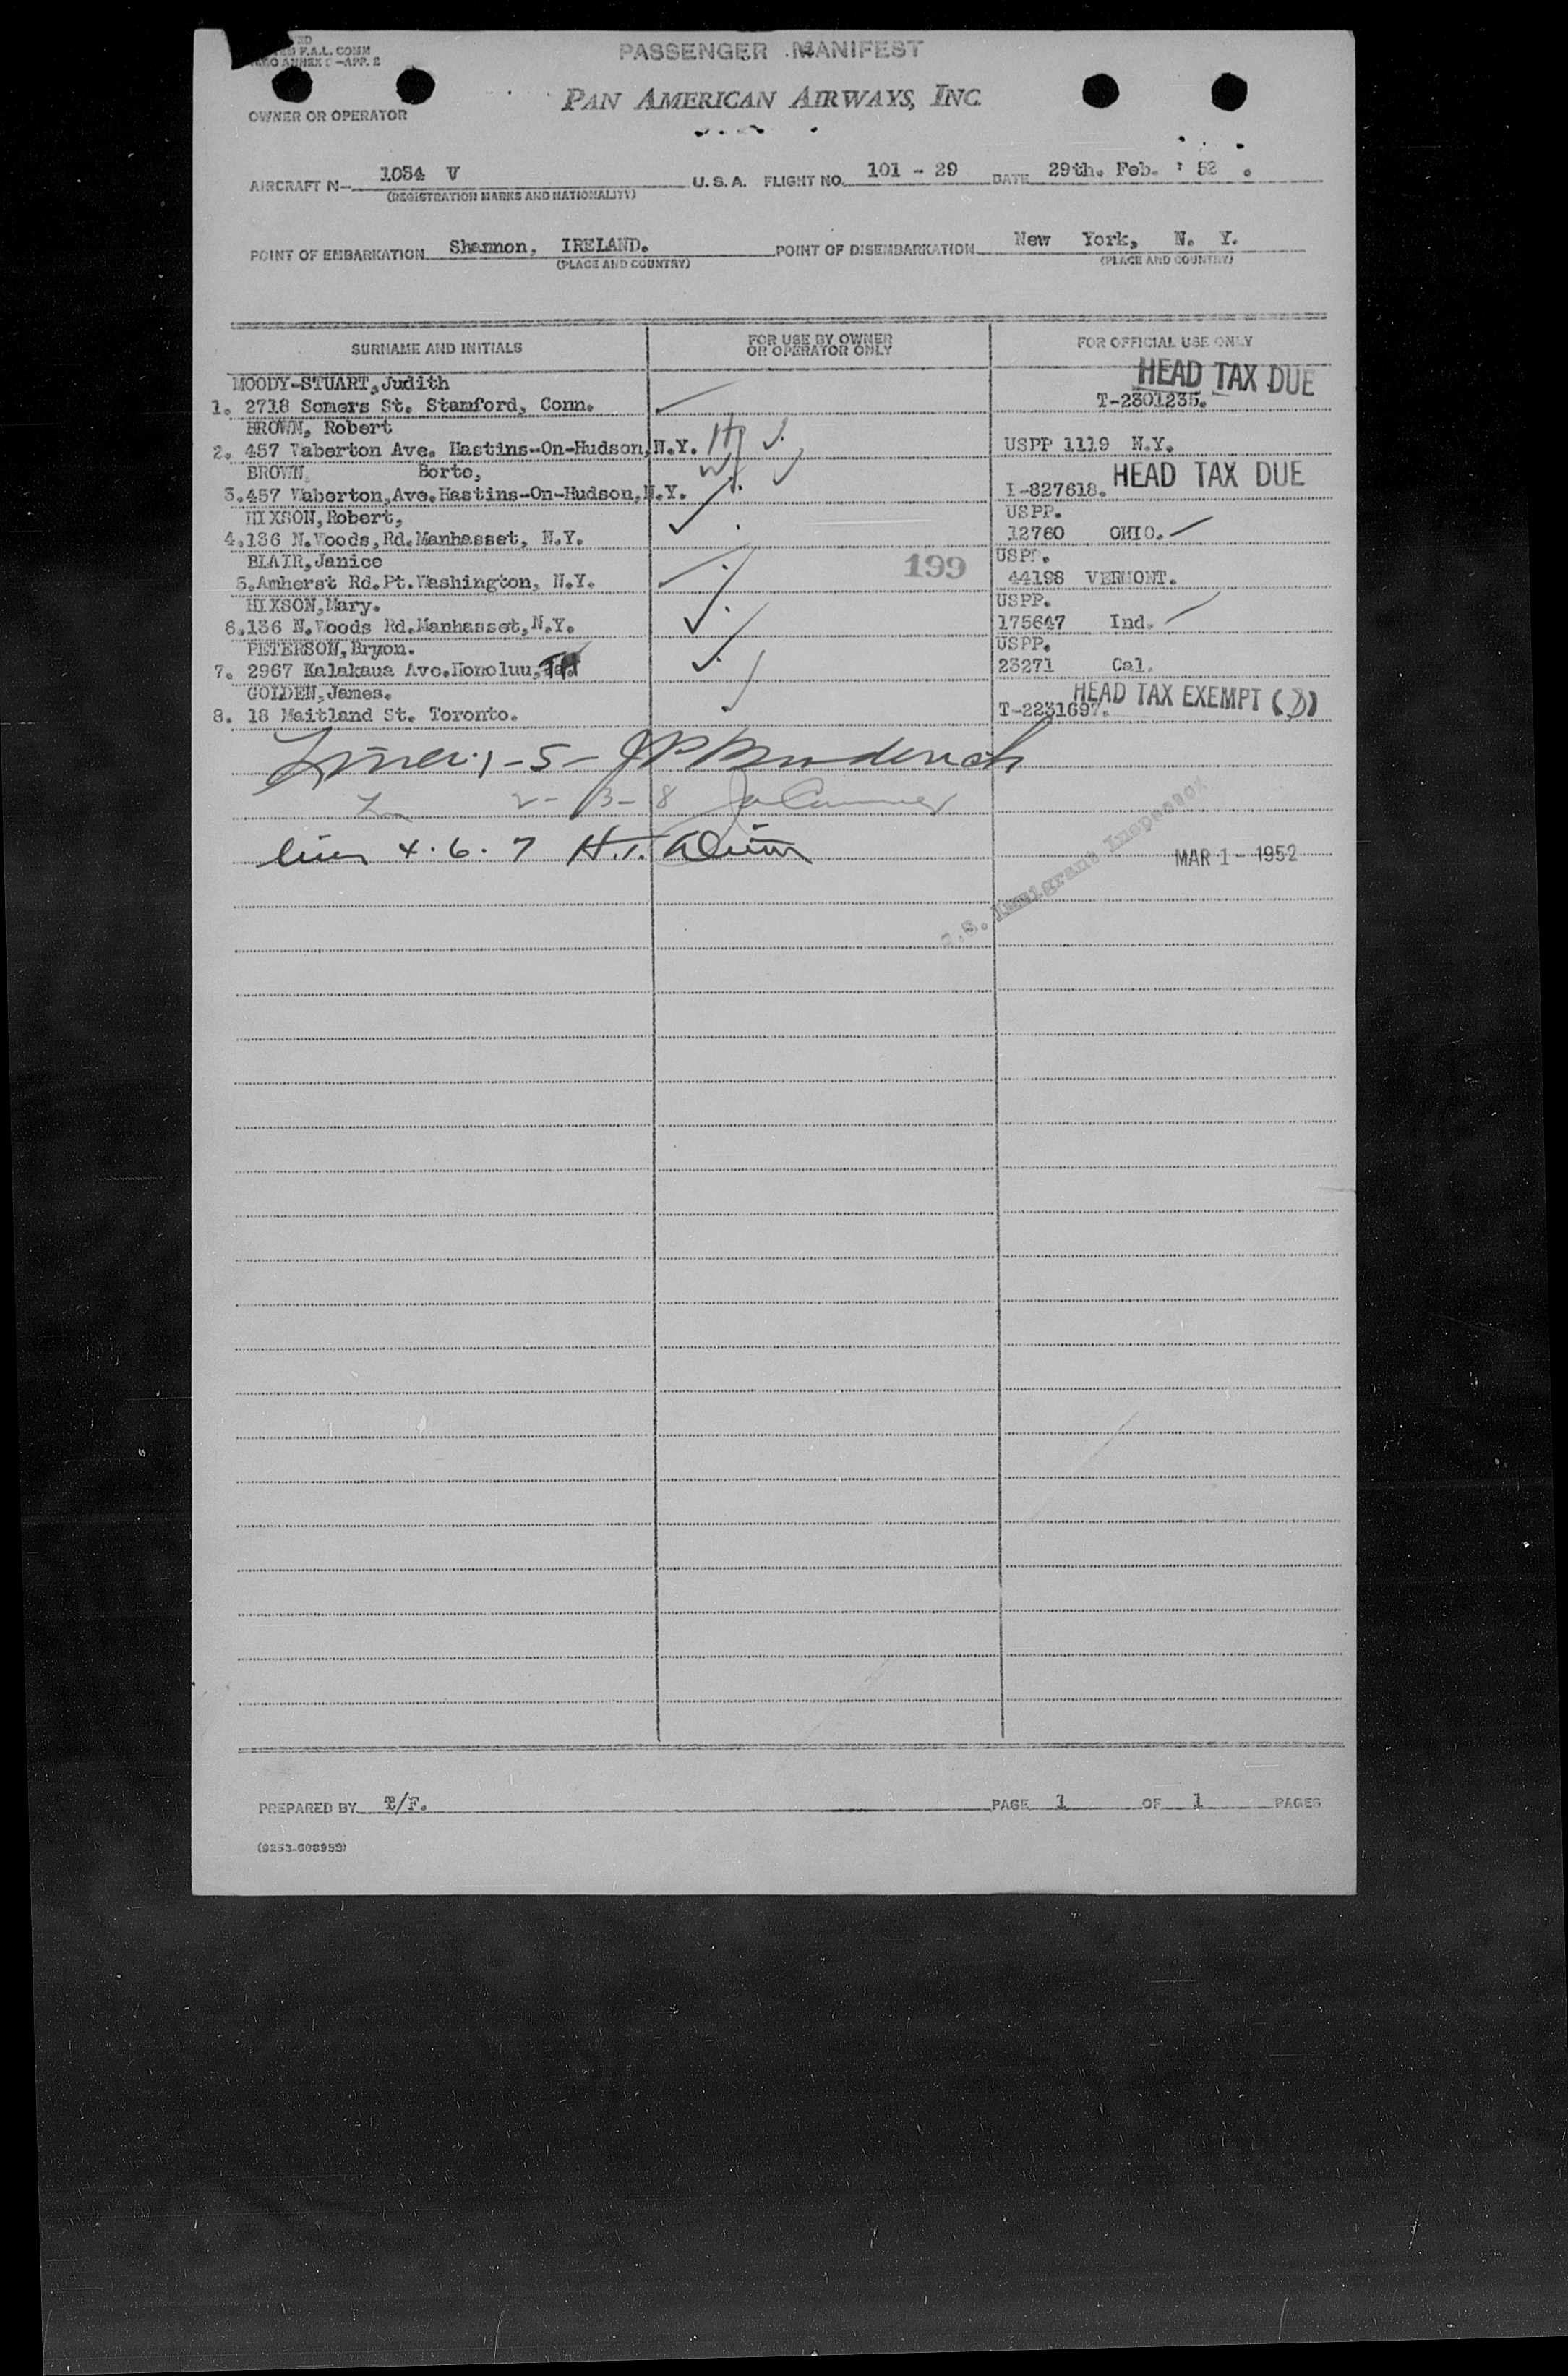 F.A.L. COMM
ANNEX 9-APP. 2
PASSENGER MANIFEST
PAN AMERICAN AIRWAYS, INC.
OWNER OR OPERATOR
AIRCRAFT N- 1034 V U.S.A. FLIGHT NO. 101 - 29 DATE 29th. Feb. ' 52 .
(REGISTRATION MARKS AND NATIONALITY)
POINT OF EMBARKATION Shannon, IRELAND. POINT OF DISEMBARKATION New York, N. Y.
(PLACE AND COUNTRY) (PLACE AND COUNTRY)
SURNAME AND INITIALS FOR USE BY OWNER OR OPERATOR ONLY FOR OFFICIAL USE ONLY
MOODY-STUART, Judith HEAD TAX DUE
1. 2718 Somers St. Stamford, Conn. T-2301235.
BROWN, Robert
2. 457 Waberton Ave. Hastins-On-Hudson, N.Y. H USPP 1119 N.Y.
BROWN, Borte, W HEAD TAX DUE
3. 457 Waberton, Ave. Hastins-On-Hudson, N.Y. I-827618.
HIXSON, Robert, USPP.
4. 136 N. Woods, Rd. Manhasset, N.Y. 12760 OHIO.
BLAIR, Janice 199 USPP.
5. Amherst Rd. Pt. Washington, N.Y. 44198 VERMONT.
HIXSON, Mary. USPP.
6. 136 N. Woods Rd. Manhasset, N.Y. 175647 Ind.
PETERSON, Bryon. USPP.
7. 2967 Kalakaua Ave. Honoluu, TH 23271 Cal.
GOLDEN, James. HEAD TAX EXEMPT (D)
8. 18 Maitland St. Toronto. T-2231697.
1-5-
2-3-8
4. 6. 7 H.T.
U.S. Immigrant Inspector
MAR 1 - 1952
PREPARED BY T/F. PAGE 1 OF 1 PAGES